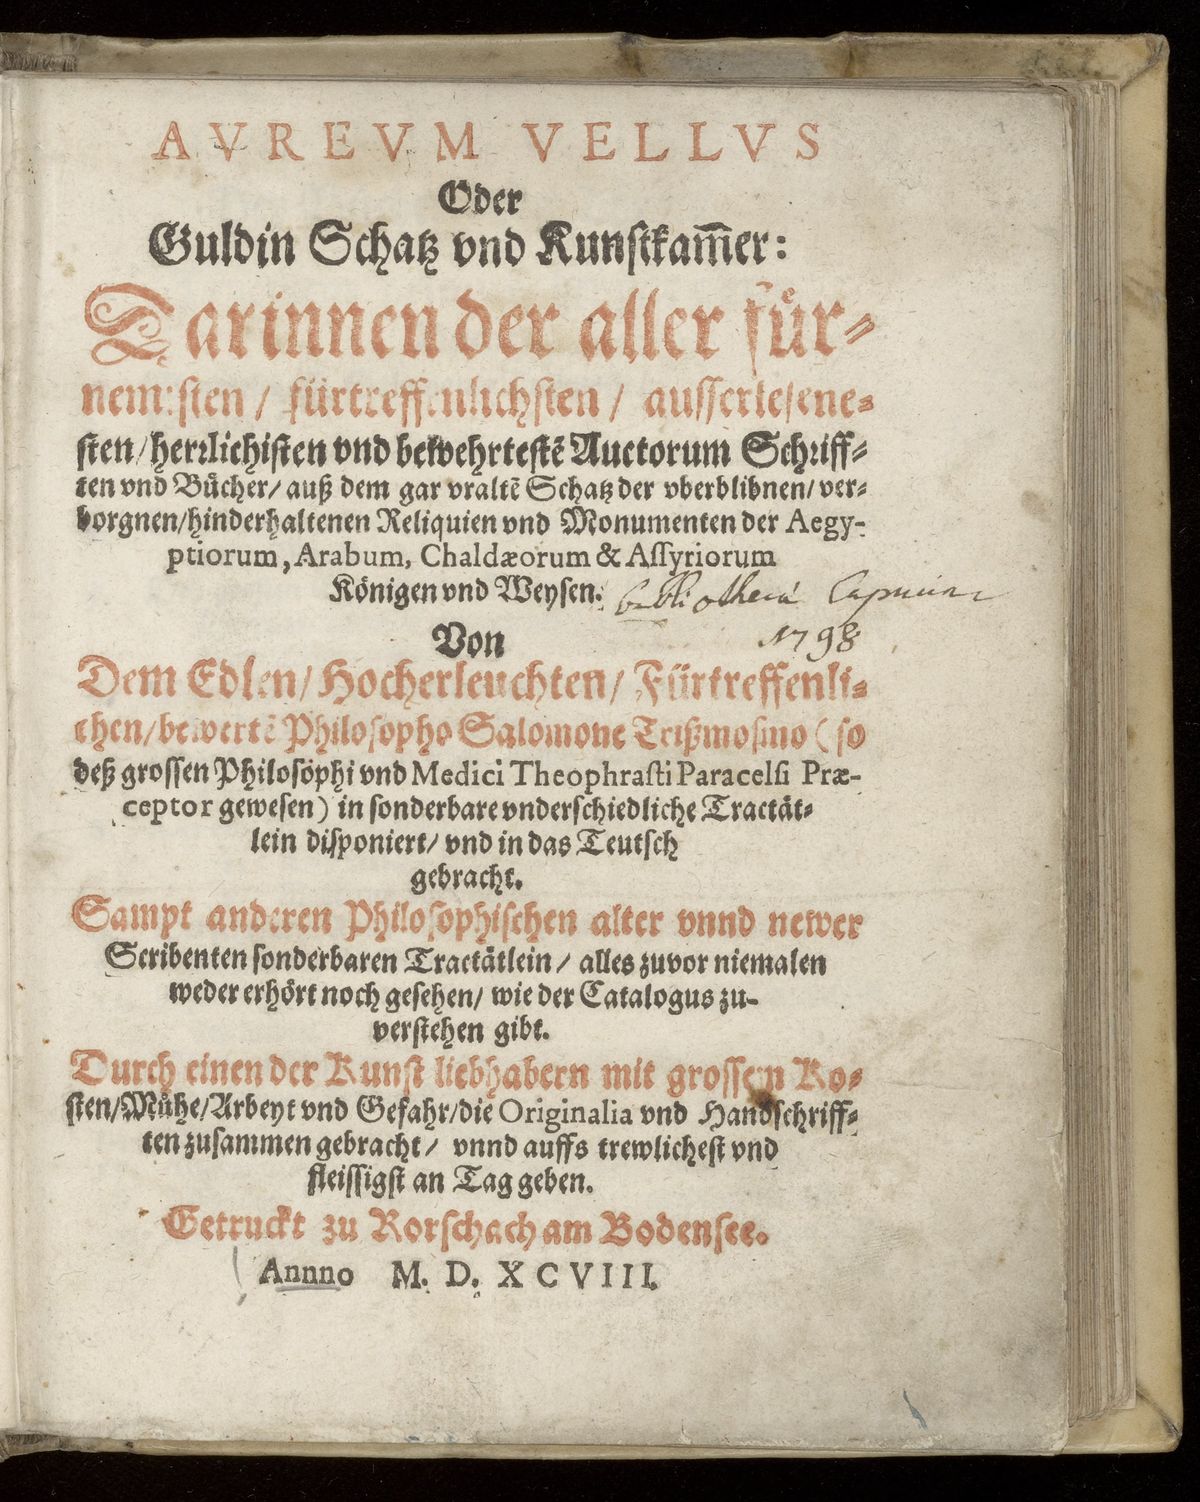 AVREVM VELLVS
Oder
Guldin Schatz vnd Kunstkam̅er:
Darinnen der aller fuͤr-
nemꝛsten / fürtreffenlichsten / ausserlesene-
sten/ herꝛlichisten vnd bewehrtestē Auctorum Schriff-
ten vnd Buͤcher/ auß dem gar vraltē Schatz der vberblibnen/ ver-
borgnen/ hinderhaltenen Reliquien vnd Monumenten der Aegy-
ptiorum, Arabum, Chaldæorum & Assyriorum
Königen vnd Weysen.
Bibliothecà
1798
Von
Dem Edlen/ Hocherleuchten/ Fürtreffenli-
chen/ bewertē Philosopho Salomone Trißmosino (so
deß grossen Philosophi vnd Medici Theophrasti Paracelsi Præ-
ceptor gewesen) in sonderbare vnderschiedliche Tractät-
lein disponiert/ vnd in das Teutsch
gebracht.
Sampt anderen Philosophischen alter vnnd newer
Scribenten sonderbaren Tractätlein/ alles zuvor niemalen
weder erhört noch gesehen/ wie der Catalogus zu-
verstehen gibt.
Durch einen der Kunst liebhabern mit grossem Ko-
sten/ Muͤhe/ Arbeyt vnd Gefahr/ die Originalia vnd Handschriff-
ten zusammen gebracht/ vnnd auffs trewlichest vnd
fleissigst an Tag geben.
Getruckt zu Rorschach am Bodensee.
Annno M. D. XCVIII.